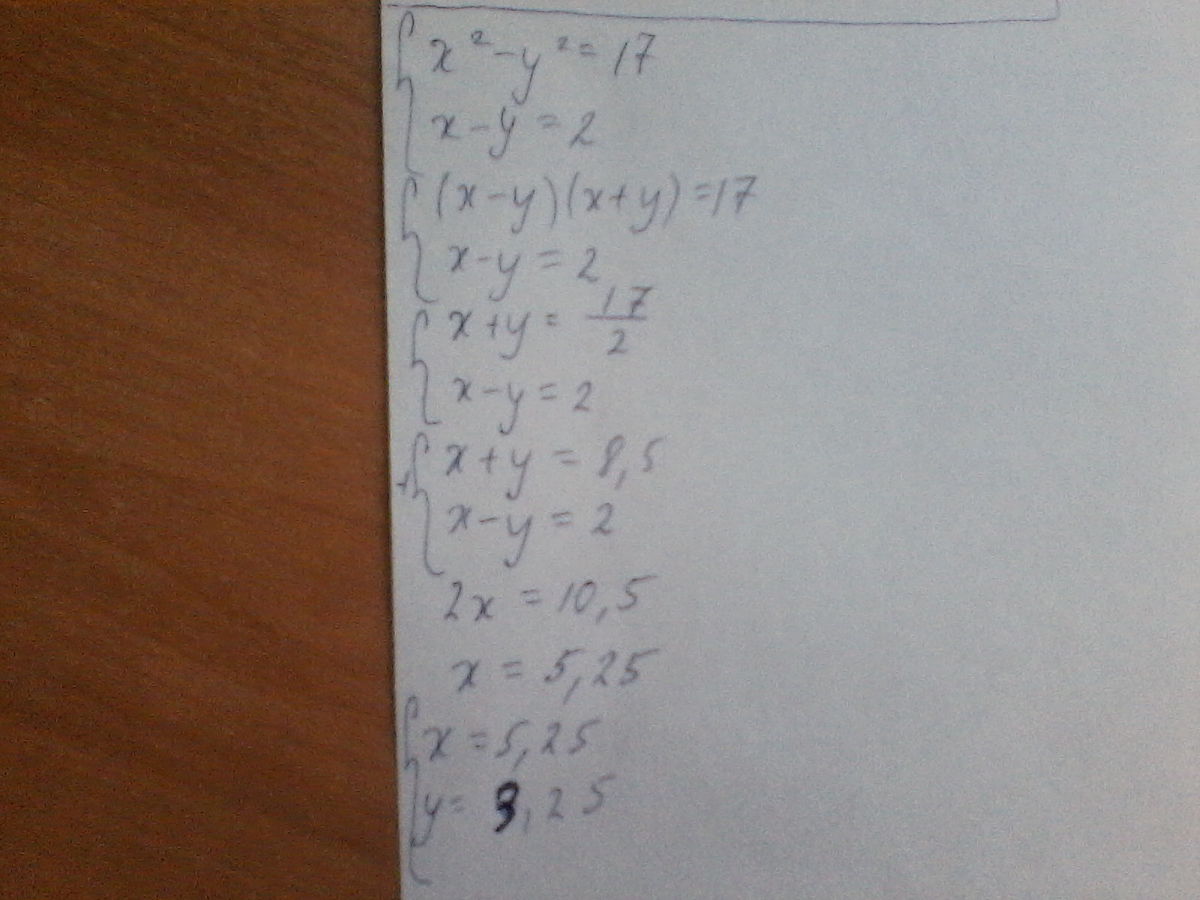 x² - y² = 17
x - y = 2
(x - y)(x + y) = 17
x - y = 2
x + y = 17/2
x - y = 2
+ x + y = 8,5
x - y = 2
2x = 10,5
x = 5,25
x = 5,25
y = 3,25